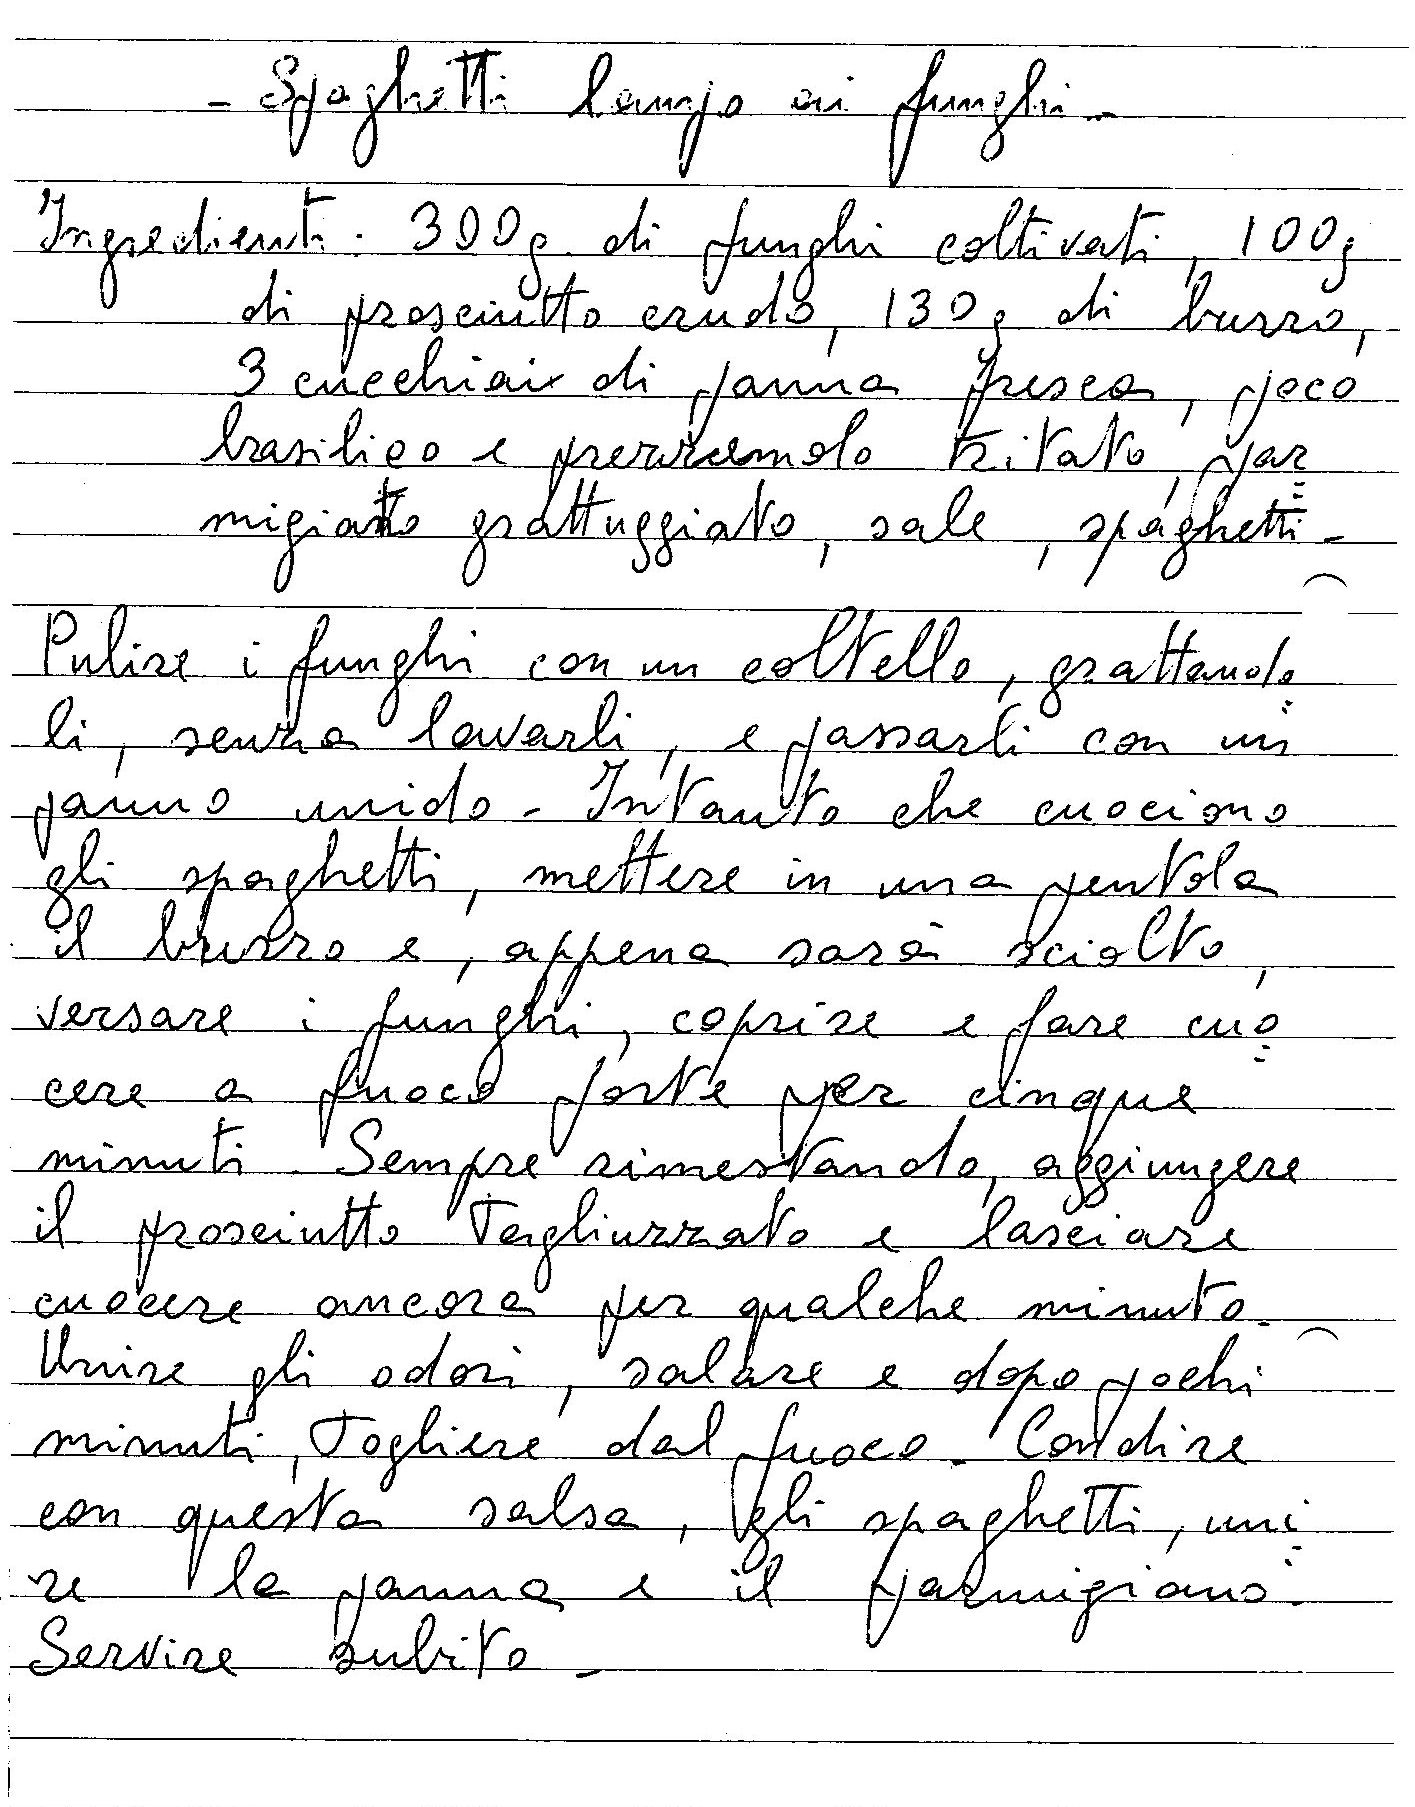 - Spaghetti lampo ai funghi -
Ingredienti: 300g di funghi coltivati, 100g
di prosciutto crudo, 130g di burro,
3 cucchiai di panna fresca, poco
basilico e prezzemolo tritato, par=
migiato grattuggiato, sale, spaghetti -
Pulire i funghi con un coltello, grattando=
li, senza lavarli, e passarli con un
panno umido - Intanto che cuociono
gli spaghetti, mettere in una pentola
il burro e, appena sarà sciolto,
versare i funghi, coprire e fare cuo=
cere a fuoco forte per cinque
minuti. Sempre rimestando, aggiungere
il prosciutto tagliuzzato e lasciare
cuocere ancora per qualche minuto.
Unire gli odori, salare e dopo pochi
minuti, togliere dal fuoco. Condire
con questa salsa, gli spaghetti, uni=
re la panna e il parmigiano.
Servire subito -